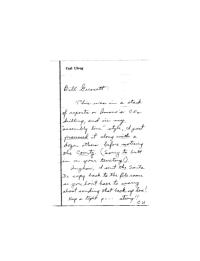 Carl Ubrog
Bill Gernett
This was in a stack
of reports on Bonnie's Co.
billing, and in my
assembly line style, I just
processed it along with a
dozen others before noticing
the County. (Sorry to butt
in on your territory).
Anyhow, I sent the Santa
Fe copy back to the file room
so you don't have to worry
about sending that back up too!
Keep a tight p... string!
C U